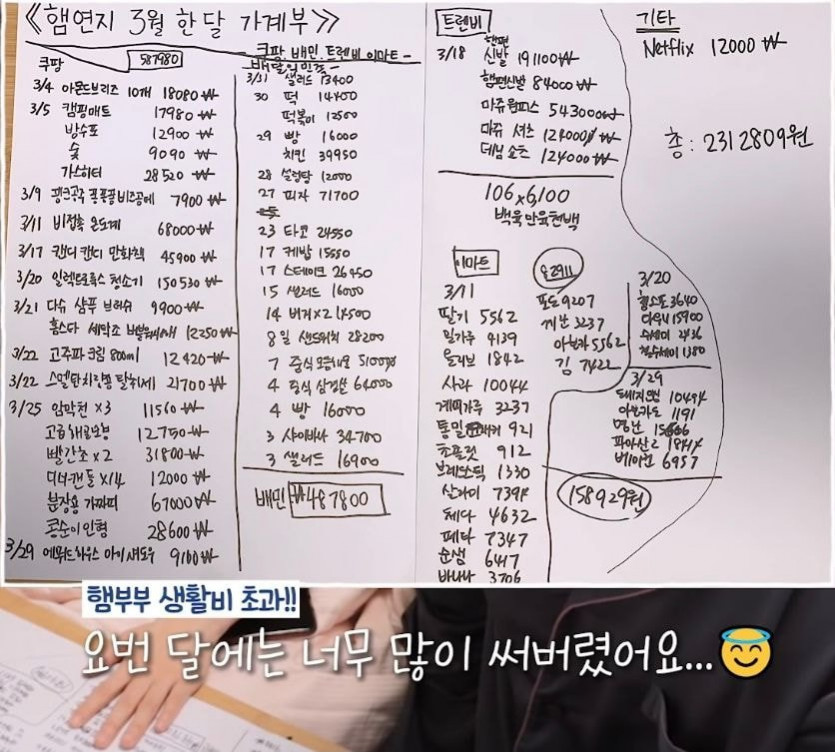 《햄연지 3월 한달 가계부》
쿠팡. 배민. 트렌비 이마트 –
쿠팡
587980
3/4 아몬드브리즈 10개 18080₩
3/5 캠핑매트 17980₩
방수포 12900₩
숯 9090₩
가스히터 28520₩
3/9 핑크공주 7900₩
3/11 비접촉 온도계 68000₩
3/17 캔디캔디 만화책 45900₩
3/20 일렉트로룩스 청소기 150530₩
3/21 다슈 샴푸 브러쉬 9900₩
홈스타 세탁조 12250₩
3/22 고주파크림 800ml 12420₩
3/22 21700₩
3/25 암막천 ×3 11560₩
고급해골모형 12750₩
빨간초×2 31800₩
디너캔들 ×14 12000₩
분장용 가짜피 67000₩
콩순이인형 28600₩
3/29 에뛰드하우스 아이섀도우 9100₩
배달의민족 –
3/31 샐러드 13400
30 떡 14400
떡볶이 12500
29 빵 16000
치킨 39950
28 설렁탕 12000
27 피자 71700
23 타코 24550
17 케밥 15550
17 스테이크 26950
15 샐러드 16000
14 버거×2 24500
8일 샌드위치 28200
7 중식 51000
4 중식 64000
4 빵 16000
3 34700
3 샐러드 16900
배민 ₩487800
트렌비
3/18 햄편 신발 191100₩
햄편신발 84000₩
마쥬원피스 543000₩
마쥬 셔츠 124000₩
데님쇼츠 124000₩
106×6,100
백육만육천백
이마트
3/11
딸기 5562
밀가루 4139
올리브 1842
사과 10044
계피가루 3237
통밀 921
초콜릿 912
브레드스틱 1330
살라미 7394
체다 4632
페타 7347
순샘 6417
바나나 3706
포도 9207
3237
아보카도 5562
김 7422
3/20
3640
15900
수세미 2436
1380
3/29
10494
아보카도 1191
명란
베이컨 6957
158929원
기타
Netflix 12000₩
총 : 2312809원
햄부부 생활비 초과!!
요번 달에는 너무 많이 써버렸어요...😇